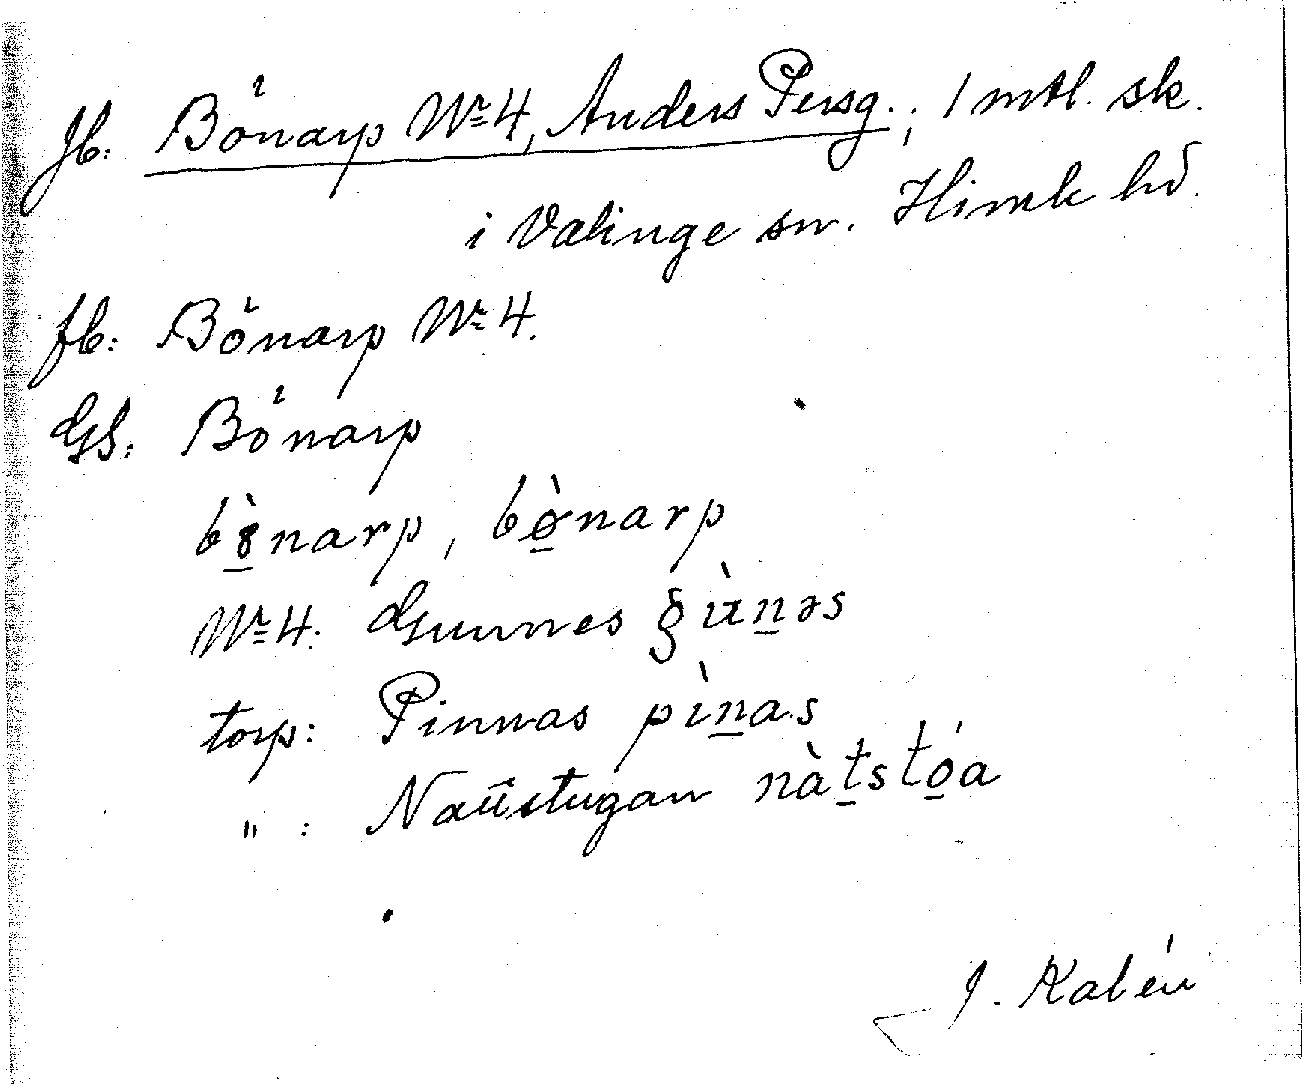 Jb: Bönarp Nr 4, Anders Persg.; 1 mtl. sk.
i Valinge sn. Himle hd.
fb: Bönarp Nr 4.
GS: Bönarp
bö̀narp, bø̠̀narp
Nr 4: Gunnes ùn̠əs
torp: Pinnas pìn̠as
" : stugan nàt̠stó̠a
J. Kalén